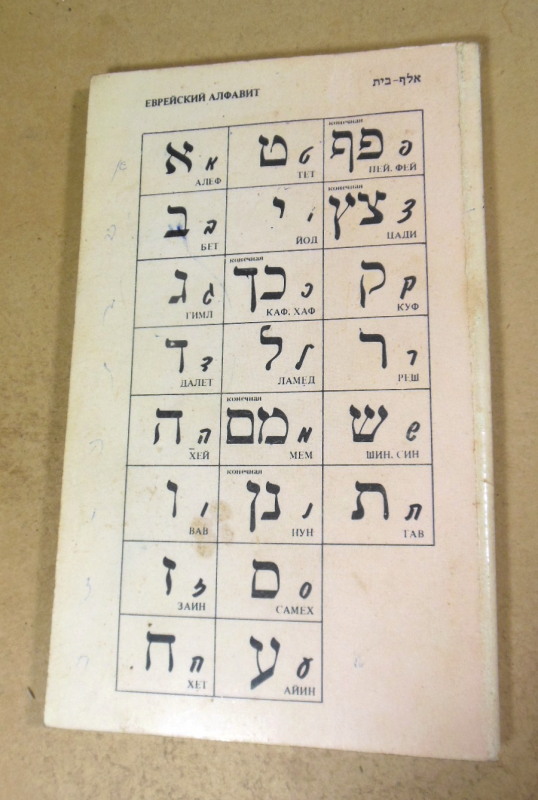 ЕВРЕЙСКИЙ АЛФАВИТ
אלף-בית
конечная
א א ט ט פף פ
АЛЕФ ТЕТ ПЕЙ, ФЕЙ
конечная
ב ב י י צץ צ
БЕТ ЙОД ЦАДИ
конечная
ג ג כך כ ק ק
ГИМЛ КАФ, ХАФ КУФ
ד ד ל ל ר ר
ДАЛЕТ ЛАМЕД РЕШ
конечная
ה ה מם מ ש ש
ХЕЙ МЕМ ШИН, СИН
конечная
ו ו נן נ ת ת
ВАВ НУН ТАВ
ז ז ס ס
ЗАИН САМЕХ
ח ח ע ע
ХЕТ АЙИН